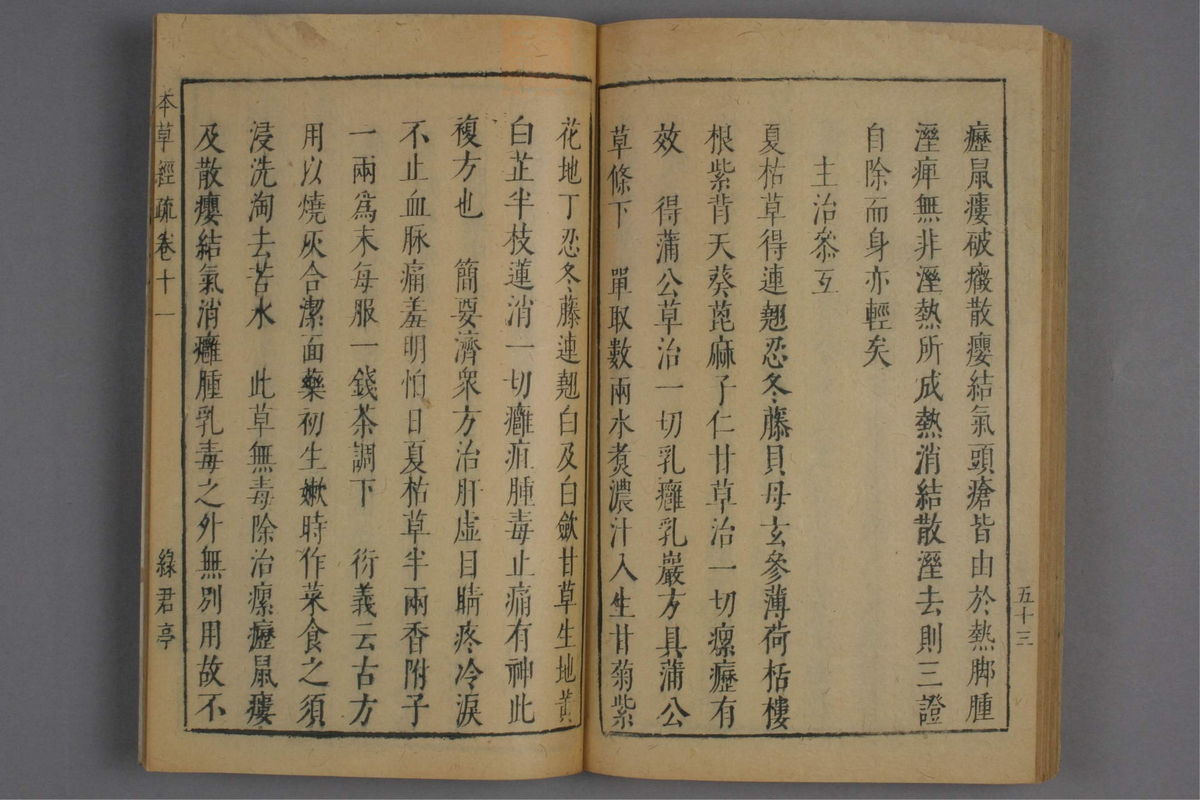 癧鼠瘻破癥散癭結氣頭瘡皆由於熱脚腫
溼痺無非溼熱所成熱消結散溼去則三證
自除而身亦輕矣
主治叅互
夏枯草得連翹忍冬藤貝母玄參薄荷栝樓
根紫背天葵蓖麻子仁甘草治一切瘰癧有
效　得蒲公草治一切乳癰乳巖方具蒲公
草條下　單取數兩水煮濃汁入生甘菊紫
五十三
花地丁忍冬藤連翹白及白歛甘草生地黃
白芷半枝蓮消一切癰疽腫毒止痛有神此
複方也　簡要濟衆方治肝虛目睛疼冷淚
不止血脉痛羞明怕日夏枯草半兩香附子
一兩爲末每服一錢茶調下　衍義云古方
用以燒灰合潔面藥初生嫰時作菜食之須
浸洗淘去苦水　此草無毒除治瘰癧鼠瘻
及散癭結氣消癰腫乳毒之外無別用故不
本草經疏卷十一
綠君亭